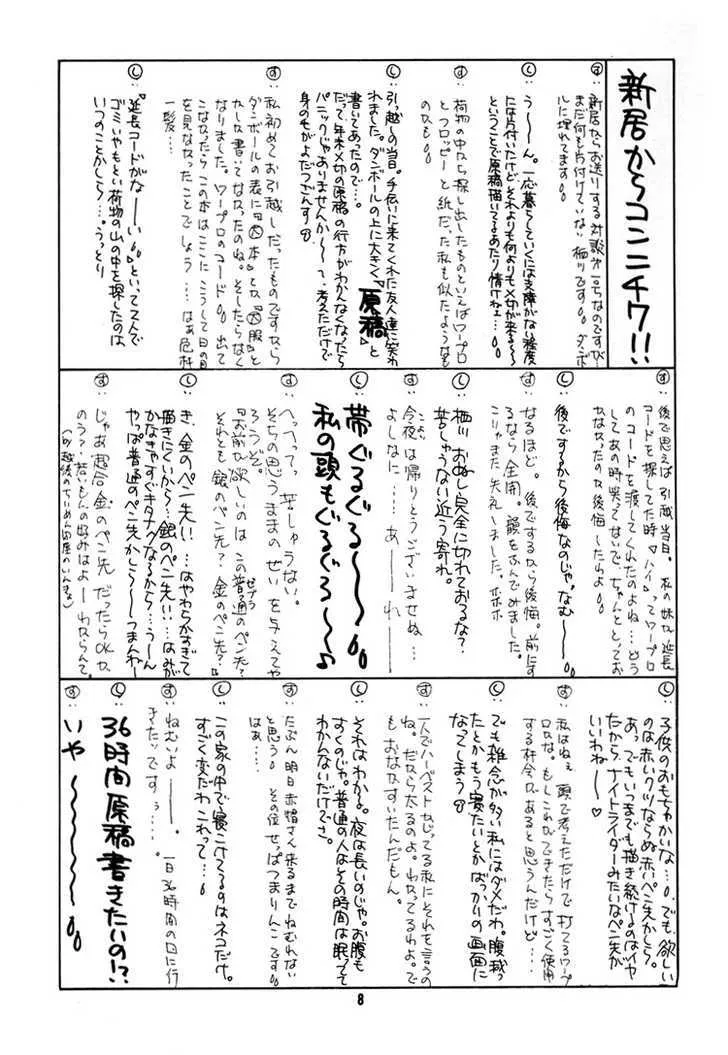 新居からコンニチワ!!
す…新居からお送りする対談が一ちなのですが
まだ何も片付けていない 栖ッです。ダンボー
ルに埋れてます。
し…う〜ん。一応暮らしていくには支障がない程度
には片付いたけどそれよりも何よりも〆切が来る〜〜
ということで原稿描いてるあたり情けねェ…
す…荷物の中から探し出したものといえばワープロ
とフロッピーと紙だった私も似たようなも
のかも
し…引っ越しの当日。手伝いに来てくれた友人達に笑わ
れました。ダンボールの上に大きく『原稿』と
書いてあったので…。
だって年末〆切の原稿の行方がわかんなくなったら
パニックじゃありませんか〜〜って、考えただけで
身の毛がよだつごんす
す…私 初めてお引越しだったものですから
ダンボールの表に『本』とか『服』と
かしか書いてなかったのね。そしたらなく
なりました。ワープロのコード 出て
こなかったらこの本はここにこうして日の目
を見なかったことでしょう…はぁ危機
一髪…
し…『延長コードがな――い』といってみんで
ゴミいやもとい荷物の山の中を探したのは
いつのことかしら…。うっとり
す…後で思えば 引越当日。私の妹が延長
コードを探してた時『ハイ』ってワープロ
のコードを渡してくれたのよね…どう
してあの時笑ってないで、ちゃんととってお
かなかったのか後悔 したわよ
し…後でするから後悔なのじゃ。なむ――
す…なるほど。後でするなら後悔。前にす
るなら全開。韻をふんでみました。
こりゃまた失礼しました。ホホホ
し…栖ッ おぬし完全に切れておるな?
苦しゅうない近う寄れ。
す…今夜は帰りとうございませぬ…
よしなに…あ――れ――
し…帯ぐるぐる〜〜
私の頭もぐるぐる〜〜♪
す…へっへって 苦しゅうない。
そちの思うままのぜいを与えてや
ろうぞ。
『お前が欲しいのは この普通のペン先?
それとも 銀のペン先? 金のペン先?』
し…き、金のペン先!! …はやわらかすぎて
描きにくいから…銀のペン先!!…はみが
かなきゃすぐキタナクなるから…う〜ん
やっぱ普通のペン先かしら〜〜つまんねー
す…じゃあ 超合金のペン先 だったらOKな
のう? 若いもんの好みはよ――わからんて。
(By越後のちりめん問屋のいんきょ)
し…子供のおもちゃかいな…。でも、欲しい
のは赤いクツならぬ赤いペン先かしら。
あっ でもいつまでも描き続けるのはイヤ
だから ナイトライダーみたいなペン先が
いいわね――♡
す…私はねぇ 頭で考えただけで 打てるワープ
ロかな。もしこれができたら すごく使用
する機会があると思うんだけど…
し…でも雑念が多い私にはダメだわ。腹減っ
たとかもう寝たいとかばっかりの画面に
なってしまう
す…一人でハーベストかじってる私にそれを言うの
ね。だから太るのよ。わかってるわよ。で
も おなかすいたんだもん。
し…それはわかる。夜は長いのじゃ。お腹も
すくのじゃ。普通の人はその時間は眠ってて
わかんないだけでさ。
す…たぶん明日 赤帽さん来るまでねむれない
と思う その位 せっぱつまりんこ です
はぁ…
し…この家の中で寝こけてくるのはネコだけ。
すごく変だわ これって…
す…ねむいよ――。一日36時間の日に行
きたッですぅ…。
し…36時間原稿書きたいの!?
す…いや〜〜〜
8